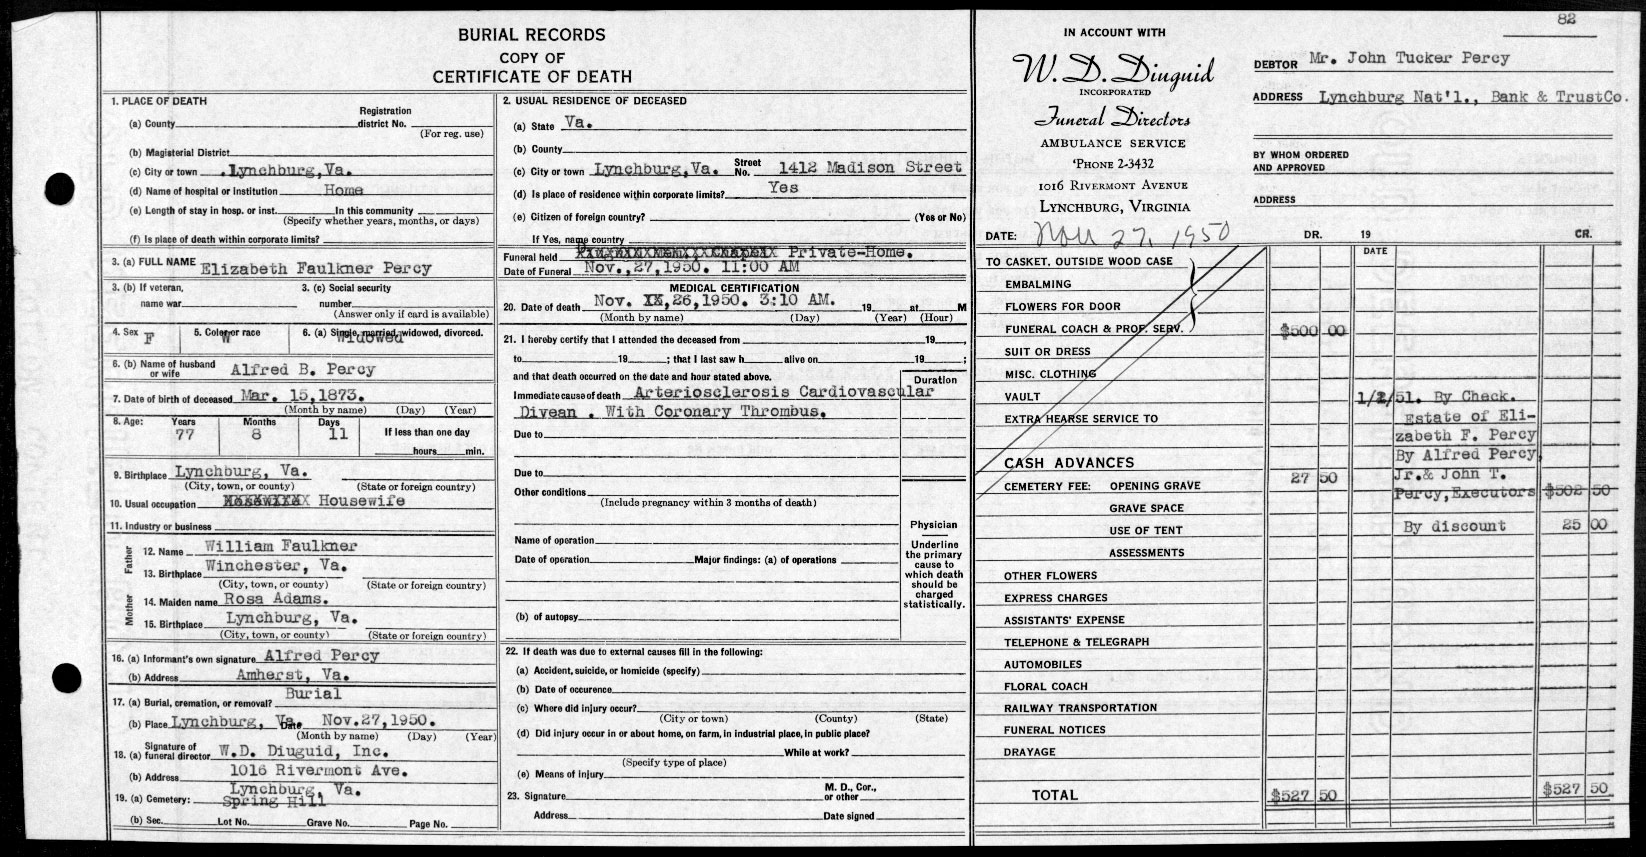 BURIAL RECORDS
COPY OF
CERTIFICATE OF DEATH
1. PLACE OF DEATH
(a) County
Registration
district No.
(For reg. use)
(b) Magisterial District
(c) City or town .Lynchburg,Va.
(d) Name of hospital or institution Home
(e) Length of stay in hosp. or inst. In this community
(Specify whether years, months, or days)
(f) Is place of death within corporate limits?
3. (a) FULL NAME Elizabeth Faulkner Percy
3. (b) If veteran,
name war
3. (c) Social security
number
(Answer only if card is available)
4. Sex F
5. Color or race W
6. (a) Single, married, widowed, divorced.
Widowed
6. (b) Name of husband
or wife Alfred B. Percy
7. Date of birth of deceased Mar. 15,1873.
(Month by name) (Day) (Year)
8. Age: Years Months Days
77 8 11
If less than one day
hours min.
9. Birthplace Lynchburg, Va.
(City, town, or county) (State or foreign country)
10. Usual occupation Housewife
11. Industry or business
Father
12. Name William Faulkner
13. Birthplace Winchester, Va.
(City, town, or county) (State or foreign country)
Mother
14. Maiden name Rosa Adams.
15. Birthplace Lynchburg, Va.
(City, town, or county) (State or foreign country)
16. (a) Informant's own signature Alfred Percy
(b) Address Amherst, Va.
17. (a) Burial, cremation, or removal? Burial
(b) Place Lynchburg, Va. Date Nov.27,1950.
(Month by name) (Day) (Year)
18. (a) Signature of
funeral director W.D. Diuguid, Inc.
(b) Address 1016 Rivermont Ave.
Lynchburg, Va.
19. (a) Cemetery: Spring Hill
(b) Sec. Lot No. Grave No. Page No.
2. USUAL RESIDENCE OF DECEASED
(a) State Va.
(b) County
(c) City or town Lynchburg,Va. Street
No. 1412 Madison Street
(d) Is place of residence within corporate limits? Yes
(e) Citizen of foreign country? (Yes or No)
If Yes, name country
Funeral held Private-Home.
Date of Funeral Nov.,27,1950. 11:00 AM
MEDICAL CERTIFICATION
20. Date of death Nov. XX,26,1950. 3:10 AM. 19 at M
(Month by name) (Day) (Year) (Hour)
21. I hereby certify that I attended the deceased from 19 ,
to 19 ; that I last saw h alive on 19 ;
and that death occurred on the date and hour stated above.
Duration
Immediate cause of death Arteriosclerosis Cardiovascular
Divean . With Coronary Thrombus.
Due to
Due to
Other conditions
(Include pregnancy within 3 months of death)
Name of operation
Date of operation Major findings: (a) of operations
(b) of autopsy
Physician
Underline
the primary
cause to
which death
should be
charged
statistically.
22. If death was due to external causes fill in the following:
(a) Accident, suicide, or homicide (specify)
(b) Date of occurence
(c) Where did injury occur?
(City or town) (County) (State)
(d) Did injury occur in or about home, on farm, in industrial place, in public place?
While at work?
(Specify type of place)
(e) Means of injury
23. Signature M. D., Cor.,
or other
Address Date signed
82
IN ACCOUNT WITH
W. D. Diuguid
INCORPORATED
Funeral Directors
AMBULANCE SERVICE
'PHONE 2-3432
1016 RIVERMONT AVENUE
LYNCHBURG, VIRGINIA
DEBTOR Mr. John Tucker Percy
ADDRESS Lynchburg Nat'l., Bank & TrustCo.
BY WHOM ORDERED
AND APPROVED
ADDRESS
DATE: Nov 27, 1950
DR. 19 CR.
DATE
TO CASKET, OUTSIDE WOOD CASE
EMBALMING
FLOWERS FOR DOOR
FUNERAL COACH & PROF. SERV. $500 00
SUIT OR DRESS
MISC. CLOTHING
VAULT 1/2/51. By Check.
EXTRA HEARSE SERVICE TO Estate of Eli-
zabeth F. Percy
By Alfred Percy,
CASH ADVANCES
CEMETERY FEE: OPENING GRAVE 27 50 Jr.& John T.
Percy,Executors $502 50
GRAVE SPACE
USE OF TENT By discount 25 00
ASSESSMENTS
OTHER FLOWERS
EXPRESS CHARGES
ASSISTANTS' EXPENSE
TELEPHONE & TELEGRAPH
AUTOMOBILES
FLORAL COACH
RAILWAY TRANSPORTATION
FUNERAL NOTICES
DRAYAGE
TOTAL $527 50 $527 50